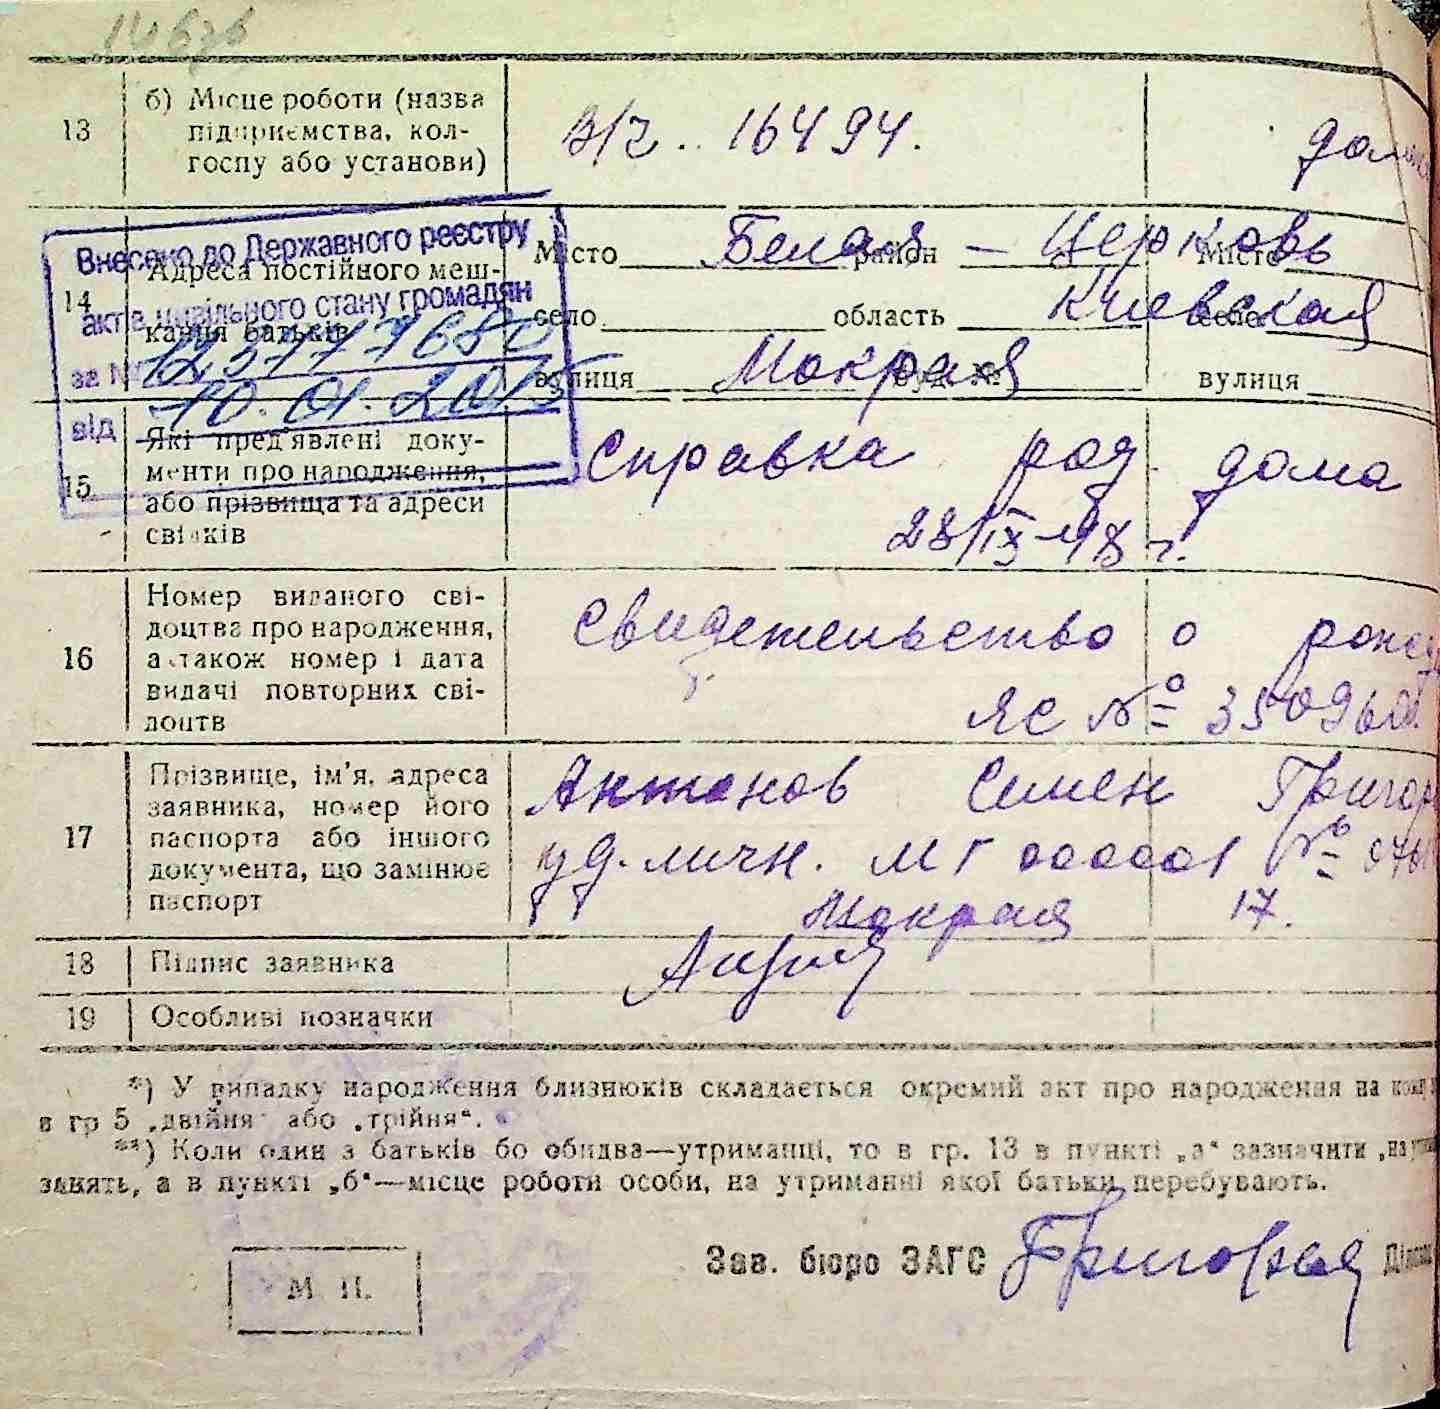 13
б) Місце роботи (назва
підприємства, кол-
госпу або установи)
в/ч. 16494.
Внесено до Державного реєстру
актів цивільного стану громадян
за №
10.01.2015
від
14
Адреса постійного меш-
кання батьків
Місто Белая район - Церковь Місто
село область Киевская село
вулиця Мокрая буд. № вулиця
15
Які пред'явлені доку-
менти про народження,
або прізвища та адреси
свідків
Справка род. дома
28/IX-48 г.
16
Номер виданого сві-
доцтва про народження,
а також номер і дата
видачі повторних сві-
доцтв
Свидетельство о
ЯС №
17
Прізвище, ім'я, адреса
заявника, номер його
паспорта або іншого
документа, що замінює
паспорт
Антонов Семен
уд. личн. МГ 000001 №
Мокрая 17.
18
Підпис заявника
19
Особливі позначки
*) У випадку народження близнюків складається окремий акт про народження на
в гр 5 „двійня" або „трійня“.
**) Коли один з батьків бо обидва—утриманці, то в гр. 13 в пункті „а“ зазначити
занять, а в пункті „б“—місце роботи особи, на утриманні якої батьки перебувають.
Зав. бюро ЗАГС
М. П.